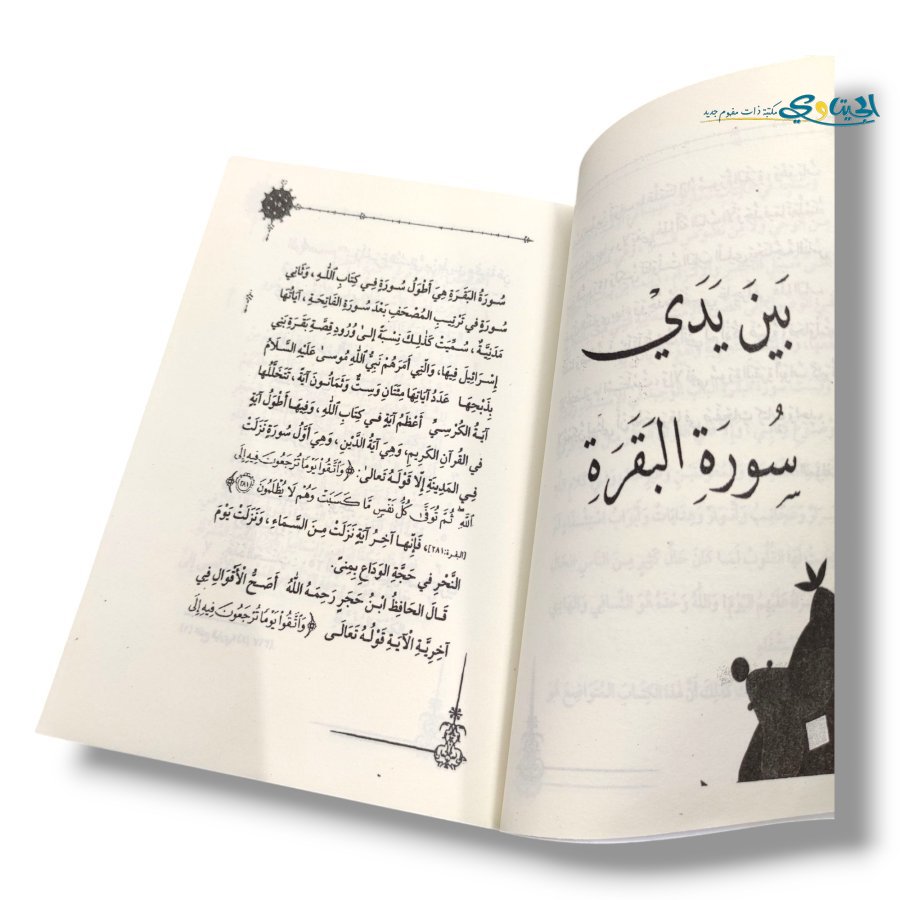 الجيتاوي مكتبة ذات مفهوم جديد
بَيْنَ يَدَيْ
سُورَةِ البَقَرَةِ
سُورَةُ البَقَرَةِ هِيَ أَطْوَلُ سُورَةٍ فِي كِتَابِ اللَّهِ، وَثَانِي
سُورَةٍ فِي تَرْتِيبِ المُصْحَفِ بَعْدَ سُورَةِ الفَاتِحَةِ، آيَاتُهَا
مَدَنِيَّةٌ، سُمِّيَتْ كَذَلِكَ نِسْبَةً إِلَى وُرُودِ قِصَّةِ بَقَرَةِ بَنِي
إِسْرَائِيلَ فِيهَا، وَالَّتِي أَمَرَهُمْ نَبِيُّ اللَّهِ مُوسَى عَلَيْهِ السَّلَامُ
بِذَبْحِهَا عَدَدُ آيَاتِهَا مِئَتَانِ وَسِتٌّ وَثَمَانُونَ آيَةً، تَتَخَلَّلُهَا
آيَةُ الكُرْسِيِّ أَعْظَمُ آيَةٍ فِي كِتَابِ اللَّهِ، وَفِيهَا أَطْوَلُ آيَةٍ
فِي القُرْآنِ الكَرِيمِ، وَهِيَ آيَةُ الدَّيْنِ، وَهِيَ أَوَّلُ سُورَةٍ نَزَلَتْ
فِي المَدِينَةِ إِلَّا قَوْلَهُ تَعَالَى: ﴿وَاتَّقُوا يَوْمًا تُرْجَعُونَ فِيهِ إِلَى
اللَّهِ ثُمَّ تُوَفَّى كُلُّ نَفْسٍ مَّا كَسَبَتْ وَهُمْ لَا يُظْلَمُونَ ٢٨١﴾
[البقرة: ٢٨١]، فَإِنَّهَا آخِرُ آيَةٍ نَزَلَتْ مِنَ السَّمَاءِ، وَنَزَلَتْ يَوْمَ
النَّحْرِ فِي حَجَّةِ الوَدَاعِ بِمِنًى.
قَالَ الحَافِظُ ابْنُ حَجَرٍ رَحِمَهُ اللَّهُ أَصَحُّ الأَقْوَالِ فِي
آخِرِيَّةِ الآيَةِ قَوْلُهُ تَعَالَى ﴿وَاتَّقُوا يَوْمًا تُرْجَعُونَ فِيهِ إِلَى